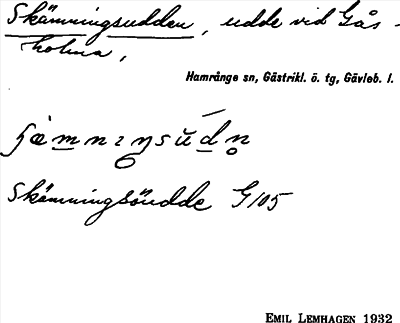 Skämningsudden, udde vid Gås-
holma,
Hamrånge sn, Gästrikl. ö. tg, Gävleb. l.
Skämningsöudde G 105
EMIL LEMHAGEN 1932